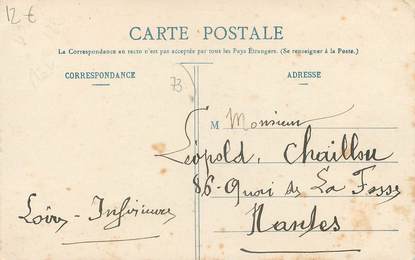 12 €
CARTE POSTALE
La Correspondance au recto n'est pas acceptée par tous les Pays Étrangers. (Se renseigner à la Poste.)
CORRESPONDANCE
ADRESSE
73
M Monsieur
Léopold, Chaillou
86-Quai de La Fosse
Loire-Inférieure
Nantes